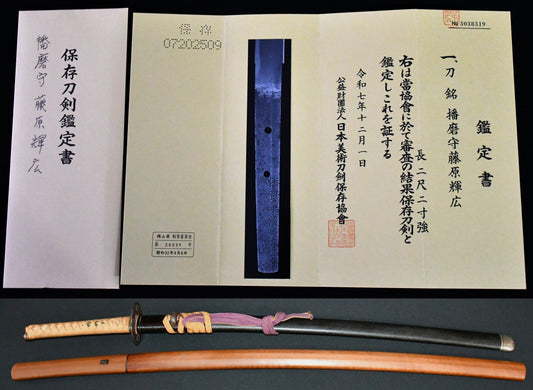 № 3038319
鑑定書
一、刀 銘 播磨守藤原輝広
長 二尺二寸強
右は當協會に於て審査の結果保存刀剣と
鑑定しこれを証する
令和七年十二月一日
公益財團法人 日本美術刀剣保存協會
保存
07202509
教育委員会
保存刀剣鑑定書
播磨守藤原輝広